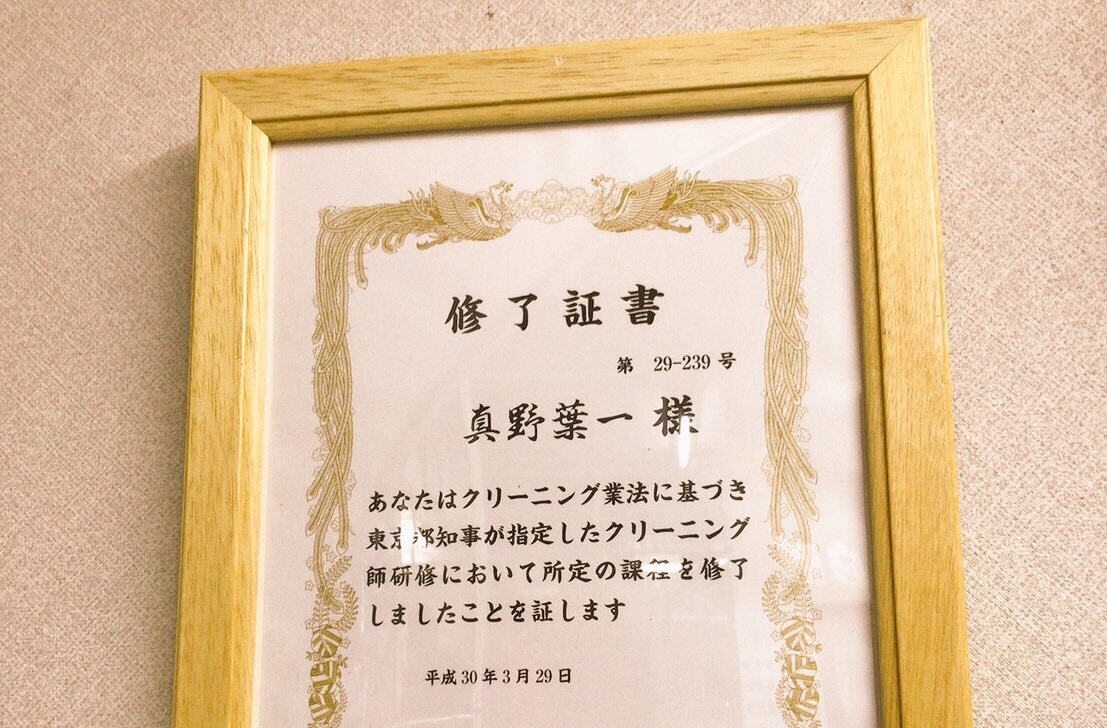 修了証書
第 29-239 号
真野葉一 様
あなたはクリーニング業法に基づき
東京都知事が指定したクリーニング
師研修において所定の課程を修了
しましたことを証します
平成30年3月29日